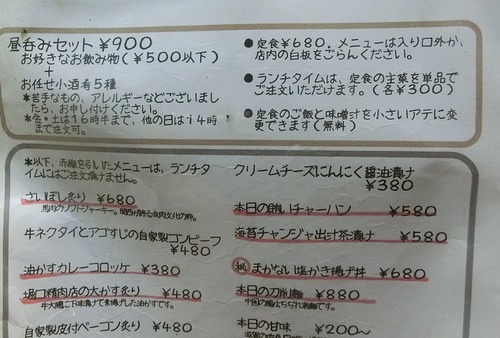 昼呑みセット ¥900
お好きなお飲み物(¥500以下)
+
お任せ小酒肴5種
*苦手なもの、アレルギーなどございまし
たら、お申し付けください。
*金・土は16時半まで、他の日は14時
まで注文可。
● 定食¥680。メニューは入り口外か、
店内の白板をごらんください。
● ランチタイムは、定食の主菜を単品で
ご注文いただけます。(各¥300)
● 定食のご飯と味噌汁を小さいアテに変
更できます(無料)
*以下、赤線を引いたメニューは、ランチタ
イムにはご注文頂けません。
さいぼし炙り ¥680
馬肉のソフトジャーキー。関西が誇る食肉文化の粋。
牛ネクタイとアゴすじの自家製コンビーフ
¥480
油かすカレーコロッケ ¥380
堀口精肉店の大かす炙り ¥480
牛大腸に下味漬けて素揚げした油かすです。
自家製皮付ベーコン炙り ¥480
クリームチーズにんにく醤油漬け
¥380
本日の賄いチャーハン ¥580
海苔チャンジャ出汁茶漬け ¥580
まかない塩かき揚げ丼 ¥680
本日の刀削麺 ¥880
本日の甘味 ¥200~